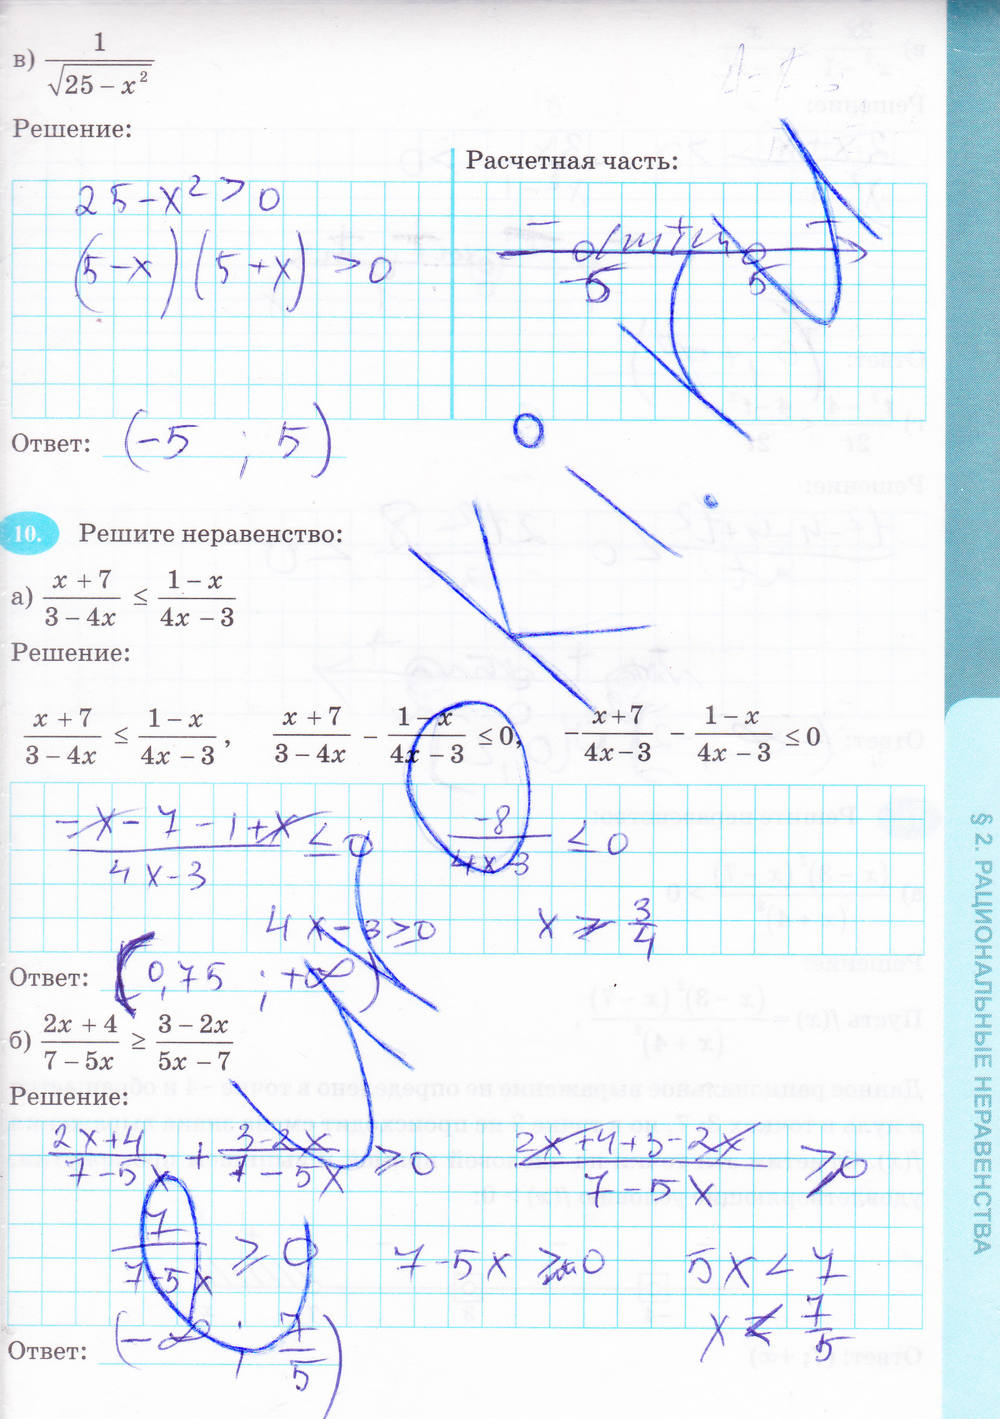 в) 1/√(25 – x²)
Решение:
Расчетная часть:
25-x²>0
(5-x)(5+x)>0
– + –
-5 5
Ответ: (-5 ; 5)
10. Решите неравенство:
а) (x + 7)/(3 – 4x) ≤ (1 – x)/(4x – 3)
Решение:
(x + 7)/(3 – 4x) ≤ (1 – x)/(4x – 3), (x + 7)/(3 – 4x) – (1 – x)/(4x – 3) ≤ 0, –(x+7)/(4x–3) – (1 – x)/(4x – 3) ≤ 0
(-x-7-1+x)/(4x-3) ≤ 0 -8/(4x-3) ≤ 0
4x-3≥0 x > 3/4
Ответ: (0,75 ; +∞)
б) (2x + 4)/(7 – 5x) ≥ (3 – 2x)/(5x – 7)
Решение:
(2x+4)/(7-5x) + (3-2x)/(7-5x) ≥ 0 (2x+4+3-2x)/(7-5x) ≥ 0
7/(7-5x) ≥ 0 7-5x > 0 5x < 7
x < 7/5
Ответ: (-∞ ; 7/5)
§ 2. РАЦИОНАЛЬНЫЕ НЕРАВЕНСТВА